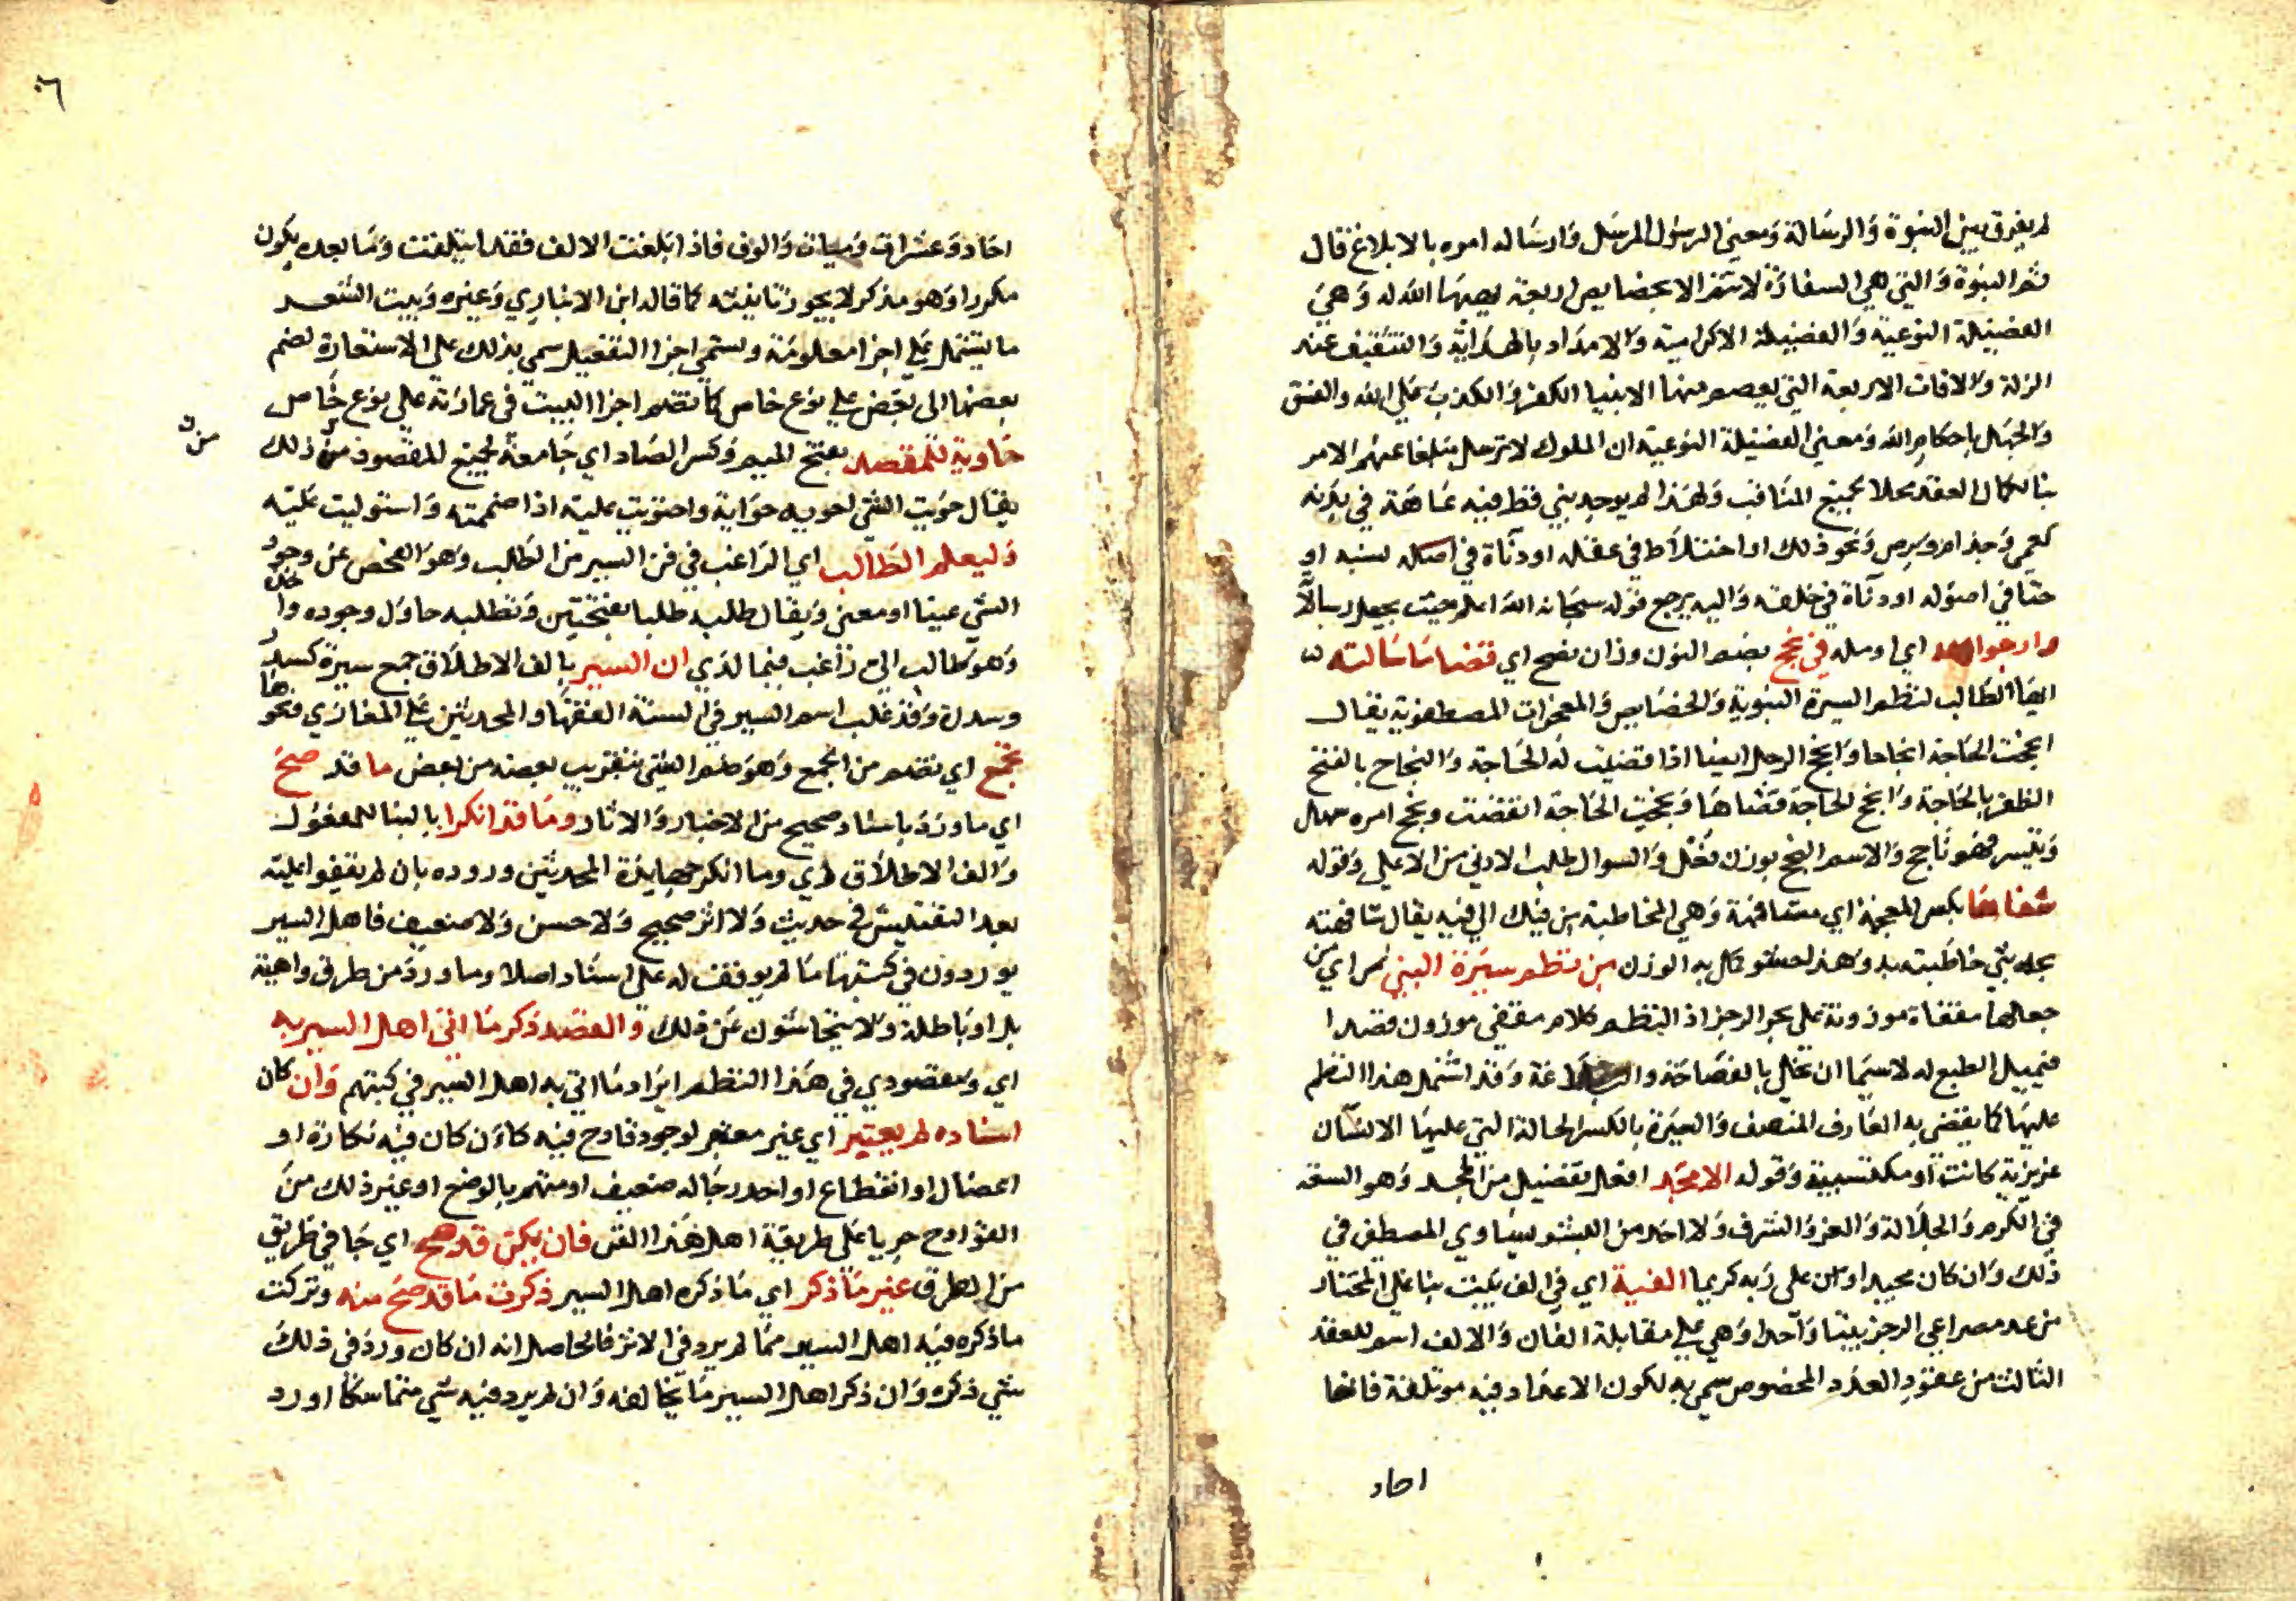 لم يفرق بين النبوة والرسالة ومعني الرسول المرسل وارساله امره بالابلاغ قال
ثم النبوة والتي هي السفارة لا تتم الا بخصايص اربعة يهبها الله له وهي
الفضيلة النوعية والفضيلة الاكرامية والامداد بالهداية والتثقيف عند
الزلة والافات الاربعة التي يعصم منها الانبيا الكفر والكذب علي الله والفسق
والجهل باحكام الله ومعني الفضيلة النوعية ان الملوك لا ترسل مبلغا عنهم الامر
بنا لكمال العقد محلا بجميع المناقب ولهذا لم يوجد نبي قط فيه عاهة في بدنه
كعمي وجذام وبرص ونحو ذلك او اختلاط في عقله او دنآة في اصله نسبه او
خنا في اصوله او دنآة في خلقه واليه يرجع قوله سبحانه الله اعلم حيث يجعل رسالاته
وارجوا اي اومله في نجح بضم النون وزان صح اي قضا ما سالته
ايها الطالب لنظم السيرة النبوية والخصايص والمعجزات المصطفوية يقال
انجحت الحاجة انجاحا وانجح الرجل ايضا اذا قضيت له الحاجة والنجاح بالفتح
الظفر بالحاجة وانجح الحاجة قضاها ونجحت الحاجة انقضت ونجح امره سهل
وتيسر فهو ناجح والاسم النجح بوزن قفل والسوال طلب الادني من الاعلي وقوله
شفاها بكسر المعجمة اي مشافهة وهي المخاطبة من فيك الي فيه يقال شافهته
خاطبته به وهذا حشو كمل به الوزن من نظم سيرة النبي اي من
جعلها مقفاة موزونة علي بحر الرجز اذ النظم كلام مقفي موزون قصدا
فيميل الطبع له لا سيما ان تحلي بالفصاحة والبلاغة وقد اشتمل هذا النظم
عليها كما يقضي به العارف المنصف والسيرة بالكسر الحالة التي عليها الانسان
غريزية كانت او مكتسبية وقوله الامجد افعل تفضيل من المجد وهو السعة
في الكرم والجلالة والعز والشرف ولا احد من البشر يساوي المصطفي في
ذلك وان كان مجيدا وان علي ربه كريما الفية اي في الف بيت بنا علي المختار
من عد مصراعي الرجز بيتا واحدا وهي علي مقابلة الفان والالف اسم للعقد
الثالث من عقود العدد المخصوص سمي به لكون الاعداد فيه موتلفة فانها
احاد
٦
احاد وعشرات وميات والوف فاذا بلغت الالف فقد ايتلفت وما بعده يكون
مكررا وهو مذكر لا يجوز تانيثه كما قاله ابن الانباري وغيره وبيت الشعر
ما يشتمل علي اجزا معلومة وتسمي اجزا التفعيل سمي بذلك علي الاستعارة لضم
بعضها الي بعض علي نوع خاص كما تضم اجزا البيت في عمارته علي نوع خاص
حاوية للمقصد بفتح الميم وكسر الصاد اي جامعة لجميع المقصود من ذلك
من
يقال حويت الشي احويه حواية واحتويت عليه اذا ضممته واستوليت عليه
وليعلم الطالب اي الراغب في فن السير من الطلب وهو الفحص عن وجود
الشي عينا او معني ويقال طلبه طلبا بفتحتين وتطلبه حاول وجوده واخذه
وهو طالب اي راغب فيما لدي ان السير بالف الاطلاق جمع سيرة كسدر
وسدرة وقد غلب اسم السير في السنة الفقها والمحدثين علي المغازي ونحوها
تجمع اي تضم من الجمع وهو ضم الشي بتقريب بعضه من بعض ما قد صح
اي ما ورد باسناد صحيح من الاخبار والاثار وما قد انكرا بالبنا للمفعول
والف الاطلاق اي وما انكر جهابذة المحدثين وروده بان لم يقفوا عليه
بعد التفتيش في حديث ولا اثر صحيح ولا حسن ولا ضعيف فاهل السير
يوردون في كتبها ما لم يوقف له علي اسناد اصلا وما ورد من طرق واهية
بل او باطلة ولا يتحاشون عن ذلك والقصد ذكر ما اتي اهل السير به
اي ومقصودي في هذا النظم ايراد ما اتي به اهل السير في كتبهم وان كان
اسناده لم يعتبر اي غير معتبر لوجود قادح فيه كان كان فيه نكارة او
اعضال او انقطاع او احد رجاله ضعيف او متهم بالوضع او غير ذلك من
القوادح جريا علي طريقة اهل هذا الفن فان يكن قد صح اي جا في طريق
من الطرق غير ما ذكر اي ما ذكره اهل السير ذكرت ما قد صح منه وتركت
ما ذكره فيه اهل السير مما لم يرد في الاثر فالحاصل انه ان كان ورد في ذلك
شي ذكره وان ذكر اهل السير ما يخالفه وان لم يرد فيه شي متماسكا اورد